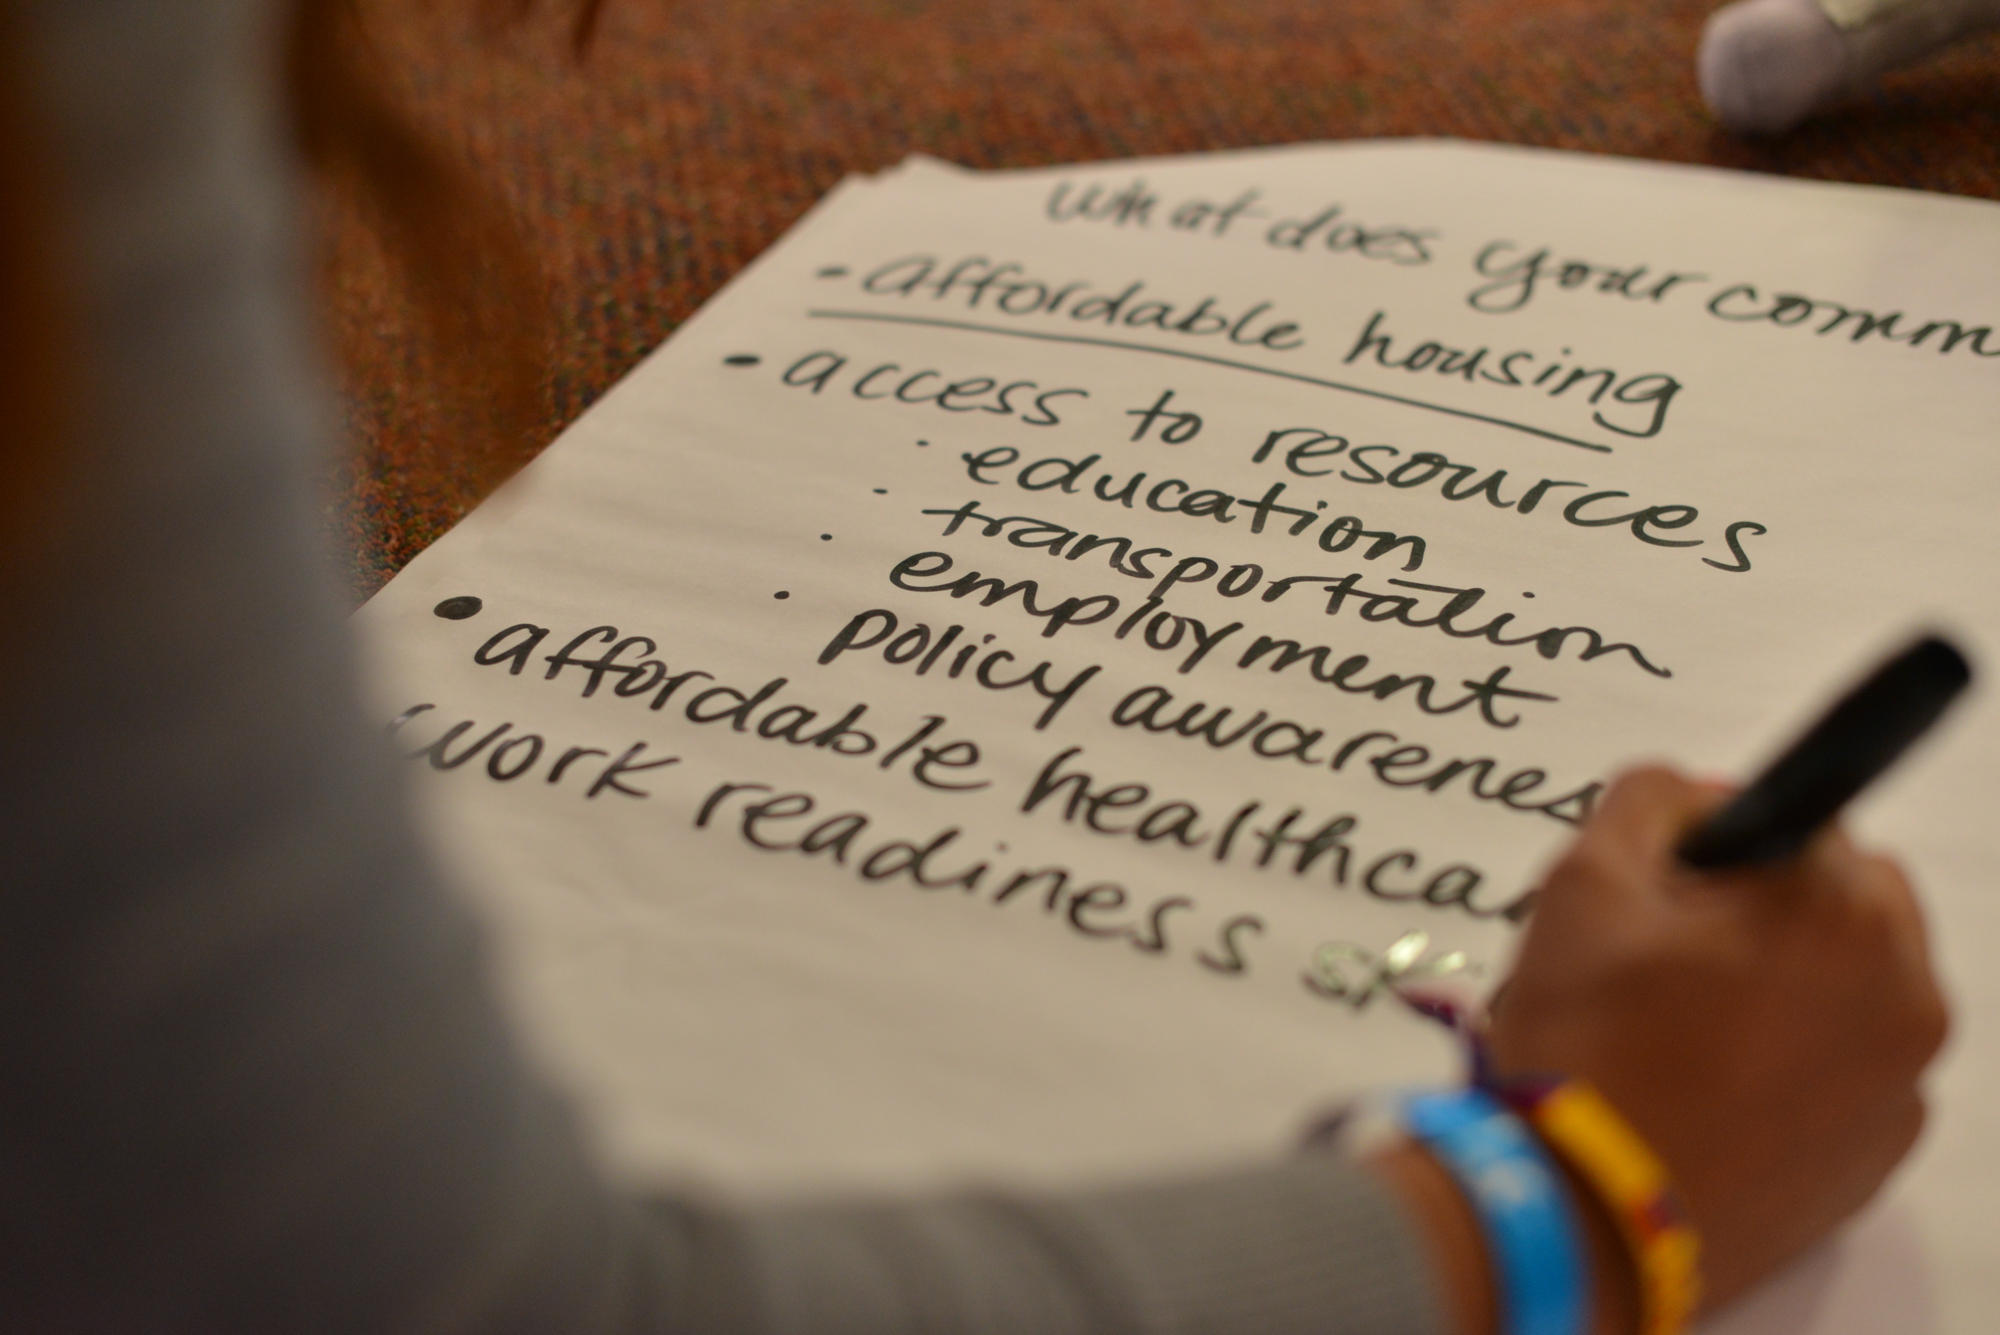 What does your comm
- affordable housing
• access to resources
· education
· transportation
· employment
· policy awarenes
• affordable healthcar
work readiness sk